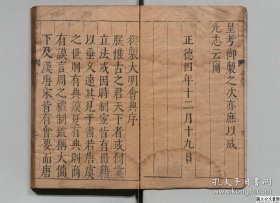 皇考御製之次亦庶以成
先志云爾
正德四年十二月十九日
御製大明會典序
朕惟古之君天下者或創業
立法或因時制宜皆有冊籍
以垂久遠其見于書若唐虞
之世則有典謨夏有典則商
有謨言周之禮制號稱大備
下及漢唐宋皆有會要而唐